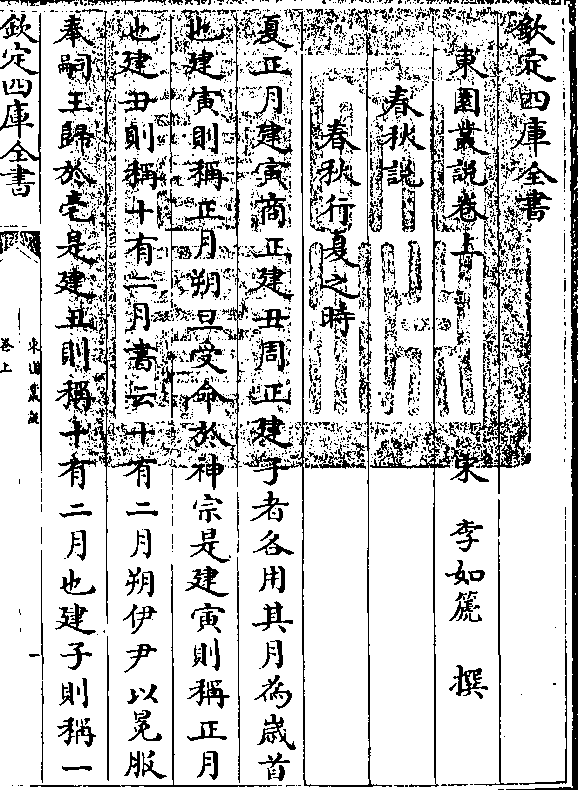 欽定四庫全書
東園叢說卷上　宋　李如篪　撰
春秋說
春秋行夏之時
夏正月建寅商正建丑周正建子者各用其月為嵗首
也建寅則稱正月朔旦受命於神宗是建寅則稱正月
也建丑則稱十有二月書云十有二月朔伊尹以冕服
奉嗣王歸於亳是建丑則稱十有二月也建子則稱一
欽定四庫全書
東園叢說
卷上
一